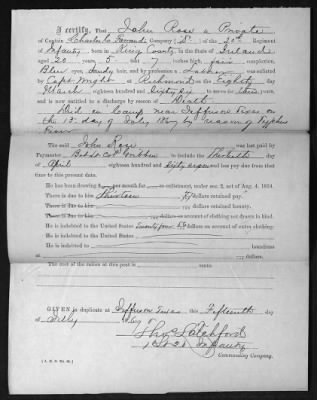 I certify, That John Rose a Private
of Captain Charles Company (D) of the 20th Regiment
of Infantry, born in King County, in the State of Ireland
aged 20 years, 5 feet 7 inches high, fair complexion,
Blue eyes, Sandy hair, and by profession a Laborer was enlisted
by Capt. Wright at Richmond on the Eighth day
March eighteen hundred and Sixty six to serve three years,
and is now entitled to discharge by reason of Death
Died in Camp near Jefferson Texas on
the 13 day of July 1867 by reason of Typhus
Fever
The said John Rose was last paid by
Paymaster to include the Thirtieth day
of April eighteen hundred and sixty seven and has pay due from that
time to the present date.
There is due to him Thirteen dollars retained pay.
There is due to him dollars on account of clothing not drawn in kind.
He is indebted to the United States Twenty four dollars on account of extra clothing.
He is indebted to the United States
He is indebted to laundress
at dollars.
The cost of the rations at this post is cents.
GIVEN in duplicate at Jefferson Texas this Fifteenth day
of July 1867
Thos Latchford
1st Lt 20 Infantry
Commanding Company.